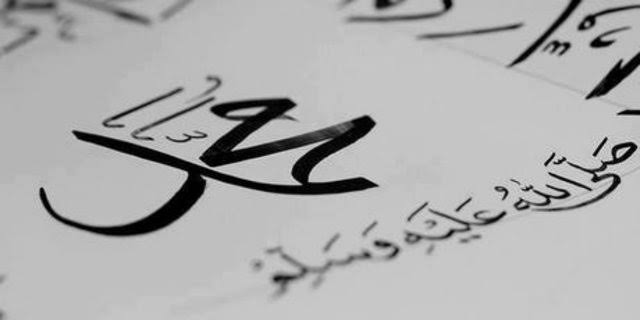 محمد
صَلَّى اللّٰهُ عَلَيْهِ وَسَلَّمَ